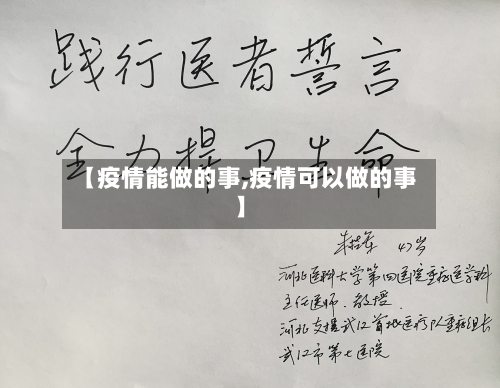 践行医者誓言
全力捍卫生命
【疫情能做的事,疫情可以做的事
】
47岁
河北医科大学第四医院重症医学科
主任医师、教授
河北支援武汉首批医疗队重症组长
武汉市第七医院